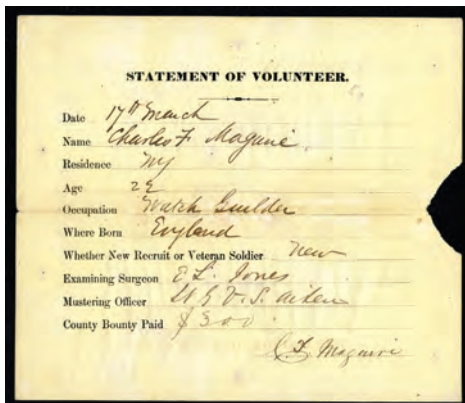 STATEMENT OF VOLUNTEER.
Date 17th March
Name Charles F Maguire
Residence NY
Age 22
Occupation Watch
Where Born England
Whether New Recruit or Veteran Soldier New
Examining Surgeon E L. Jones
Mustering Officer S. Aiken
County Bounty Paid $300
C F. Maguire